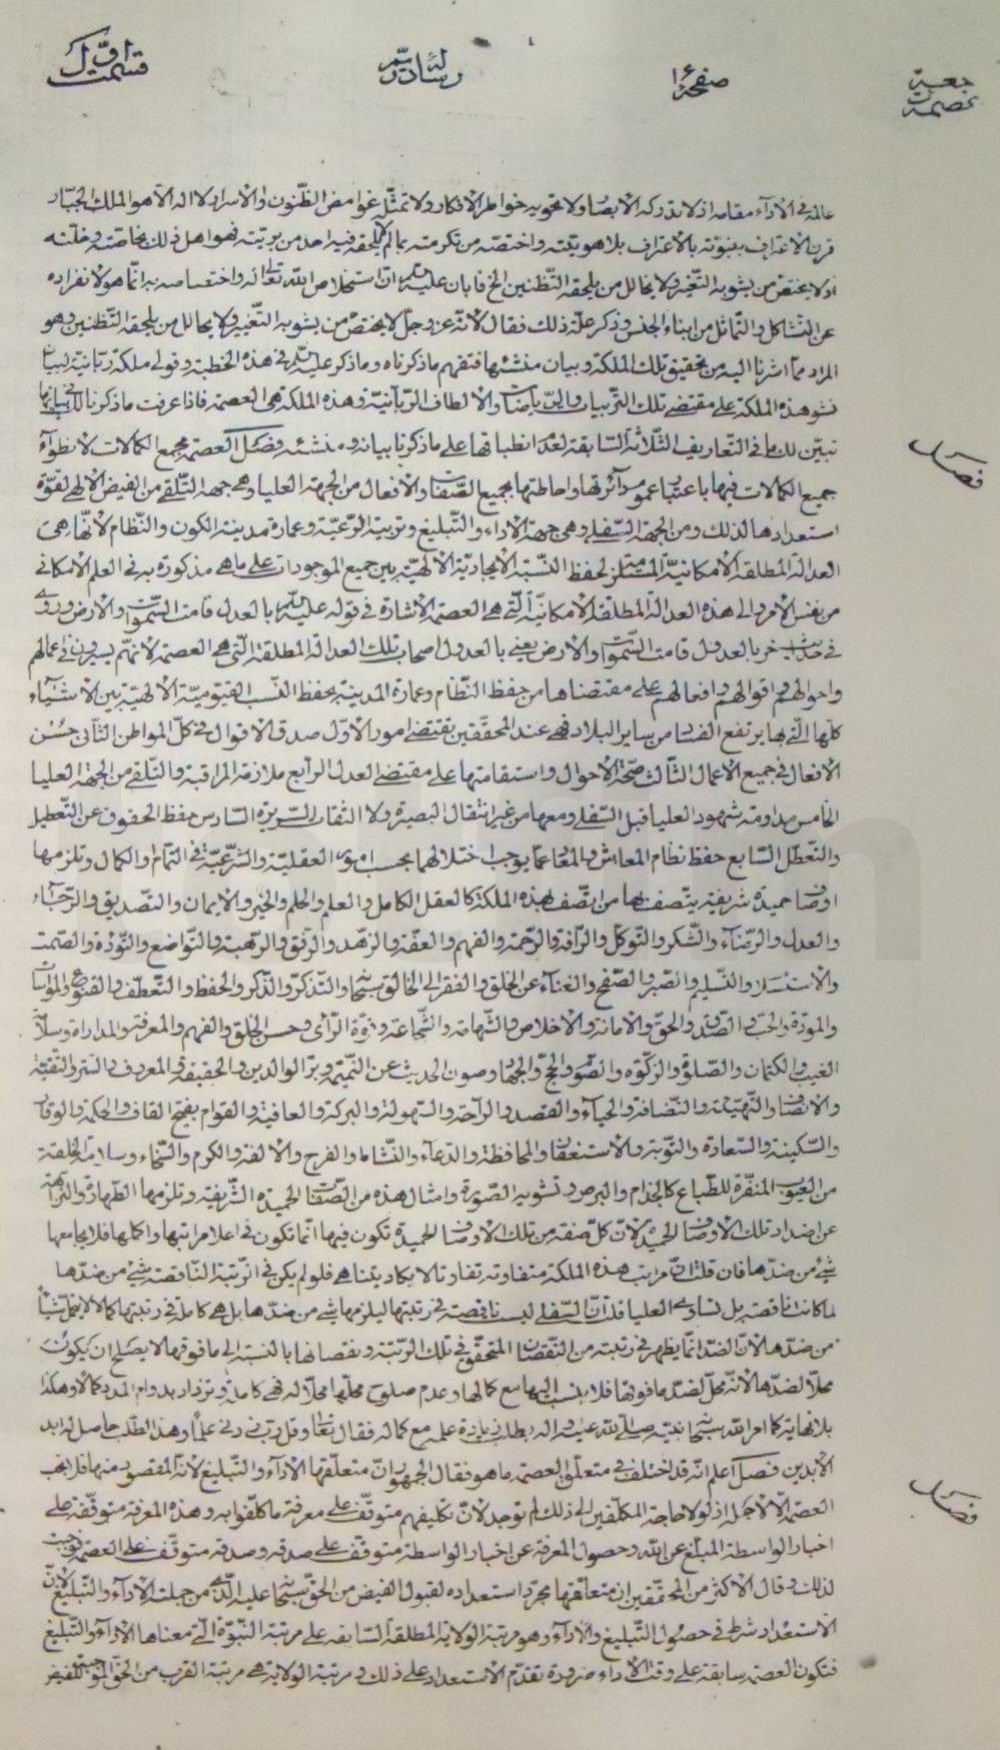 جعبة
عصمت
صفحة ١٤
رسالة دويّم
قسمت اوّل
عالمه في الأدآء مقامه اذ لا تدركه الأبصار ولا تحويه خواطر الأفكار ولا تمثّله غوامض الظّنون في الأسرار لا اله الّا هو الملك الجبّار
قرن الاعتراف بنبوّته بالاعتراف بلاهوتيّته واختصّه من تكرمته بما لم يلحقه فيه احد من بريّته فهو اهل ذلك بخاصّته وخلّته
اذ لا يختصّ من يشوبه التّغيير ولا يخالل من يلحقه التّظنين الخ فابان عليه السّلم انّ استخلاص الله تعالى له واختصاصه به انّما هو لانفراده
عن التّشاكل والتّماثل من ابناء الجنس وذكر علّة ذلك فقال لأنّه عزّ وجلّ لا يختصّ من يشوبه التّغيير ولا يخالل من يلحقه التّظنين وهو
المراد ممّا اشرنا اليه من تحقيق تلك الملكة وبيان منشئها فتفهم ما ذكرناه وما ذكر عليه السّلم في هذه الخطبة وقولي ملكة ربّانيّة لبيان
نشو هذه الملكة على مقتضى تلك التّربيات والرّياضات والألطاف الرّبّانيّة وهذه الملكة هي العصمة فاذا عرفت ما ذكرنا في بيانها
تبيّن لك ما في التّعاريف الثّلاثة السّابقة لعدم انطباقها على ما ذكرنا بيانه ومنشئه فصل العصمة مجمع الكمالات لانطوآء
فصل
جميع الكمالات فيها باعتبار عموم دآئرتها واحاطتها بجميع الصّفات والأفعال من الجهة العليا وهي جهة التّلقّي من الفيض الألهي لقوّة
استعدادها لذلك ومن الجهة السّفلى وهي جهة الأداء والتّبليغ وتربية الرّعيّة وعمارة مدينة الكون والنّظام لأنّها هي
العدالة المطلقة الأمكانيّة المستلزمة لحفظ النّسبة الأيجاديّة الألهيّة بين جميع الموجودات على ما هي مذكورة به في العلم الأمكاني
من نفس الأمر والى هذه العدالة المطلقة الأمكانيّة الّتي هي العصمة الأشارة في قوله عليه السّلم بالعدل قامت السّموات والأرض وروي
في حديث اخر بالعدول قامت السّموات والأرض يعني بالعدول اصحاب تلك العدالة المطلقة الّتي هي العصمة لأنّهم يسيرون في اعمالهم
واحوالهم واقوالهم وافعالهم على مقتضاها من حفظ النّظام وعمارة المدينة بحفظ النّسب القيّوميّة الألهيّة بين الأشيآء
كلّها الّتي بها يرتفع الفساد من ساير البلاد فهي عند المحقّقين تقتضي امور الأوّل صدق الأقوال في كلّ المواطن الثّاني حسن
الأفعال في جميع الأعمال الثّالث صحّة الأحوال واستقامتها على مقتضى العدل الرّابع ملازمة المراقبة والتّلقّي من الجهة العليا
الخامس مداومة شهود العليا قبل السّفلى ومعها من غير انتقال البصيرة ولا التفات السّريرة السّادس حفظ الحقوق عن التّعطيل
والتّعطّل السّابع حفظ نظام المعاش والمعاد عمّا يوجب اختلالهما بحسب العقليّة والشّرعيّة في التّمام والكمال وتلزمها
اوصاف حميدة شريفة يتّصف بها من اتّصف بهذه الملكة كالعقل الكامل والعلم والحلم والخير والأيمان والتّصديق والرّجآء
والعدل والرّضآء والشّكر والتّوكّل والرّأفة والرّحمة والفهم والعفّة والزّهد والرّفق والرّهبة والتّواضع والتّؤدة والصّمت
والأستسلام والتّسليم والصّبر والصّفح والغنآء عن الخلق والفقر الى الخالق سبحانه والتّذكّر والذّكر والحفظ والتّعطّف والقنوع والمواساة
والمودّة والحبّ والصّدق والحقّ والأمانة والأخلاص والشّهامة والشّجاعة وقوّة الرّأى وحسن الخلق والفهم والمعرفة والمداراة وسلامة
الغيب والكتمان والصّلوة والزّكوة والصّوم والحجّ والجهاد وصون الحديث عن النّميمة وبرّ الوالدين والحقيقة والمعروف والسّتر والتّقيّة
والأنصاف والتّهيئة والنّظافة والحيآء والقصد والرّاحة والسّهولة والبركة والعافية والقوام بفتح القاف والحكمة والوقار
والسّكينة والسّعادة والتّوبة والأستغفار والمحافظة والدّعآء والنّشاط والفرح والألفة والكرم والسّخاء وسلامة الخلقة
من العيوب المنفّرة للطّباع كالجذام والبرص وتشويه الصّورة وامثال هذه من الصّفات الحميدة الشّريفة وتلزمها الطّهارة والنّزاهة
عن اضداد تلك الأوصاف الحميدة لأنّ كلّ صفة من تلك الأوصاف الحميدة تكون فيها انّما تكون في اعلا مراتبها واكملها فلا يجامعها
شيء من ضدّها فان قلت انّ مراتب هذه الملكة متفاوتة تفاوتا لا يكاد يتناهي فلو لم يكن في الرّتبة النّاقصة شيء من ضدّها
لما كانت ناقصة بل تساوي العليا قلت انّ السّفلى ليست ناقصة في رتبتها ليلزمها شيء من ضدّها بل هي كاملة في رتبتها كمالا لا يحتمل شيئاً
من ضدّها لأنّ الضّدّ انّما يظهر في رتبة من النّقصان المتحقّق في تلك الرّتبة ونقصانها بالنّسبة الى ما فوقها لا يصلح ان يكون
محلّا لضدّها لأنّه محلّ لضدّ ما فوقها فلا ينسب اليها مع كمالها وعدم صلوح محلّها محلّا له فهي كاملة وتزداد بدوام المدد كمالا وهكذا
بلا نهاية كما امر الله سبحانه نبيّه صلّى الله عليه واله بطلب زيادة علمه مع كماله فقال تعالى وقل ربّ زدني علماً وهذا الطّلب حاصل له ابد
الأبدين فصل اعلم انّه قد اختلف في متعلّق العصمة ما هو فقال الجمهور انّ متعلّقها الأدآء والتّبليغ لأنّه المقصود منها فلا تجب
فصل
العصمة الّا لأجله اذ لولا حاجة المكلّفين الى ذلك لم توجد لأنّ تكليفهم متوقّف على معرفة ما كلّفوا به وهذه المعرفة متوقّفة على
اخبار الواسطة المبلّغ عن الله وحصول المعرفة عن اخبار الواسطة متوقّف على صدقه وصدقه متوقّف على العصمة فوجبت
لذلك وقال الأكثر من المحقّقين ان متعلّقها مجرّد استعداده لقبول الفيض من الحقّ سبحانه عليه الّذي من جملته الأدآء والتّبليغ لأنّ
الأستعداد شرط في حصول التّبليغ والأدآء وهو مرتبة الولاية المطلقة السّابقة على مرتبة النّبوّة الّتي معناها الأدآء والتّبليغ
فتكون العصمة سابقة على وقت الأداء ضرورة تقدّم الأستعداد على ذلك ومرتبة الولاية هي مرتبة القرب من الحقّ الموجبة للفيض